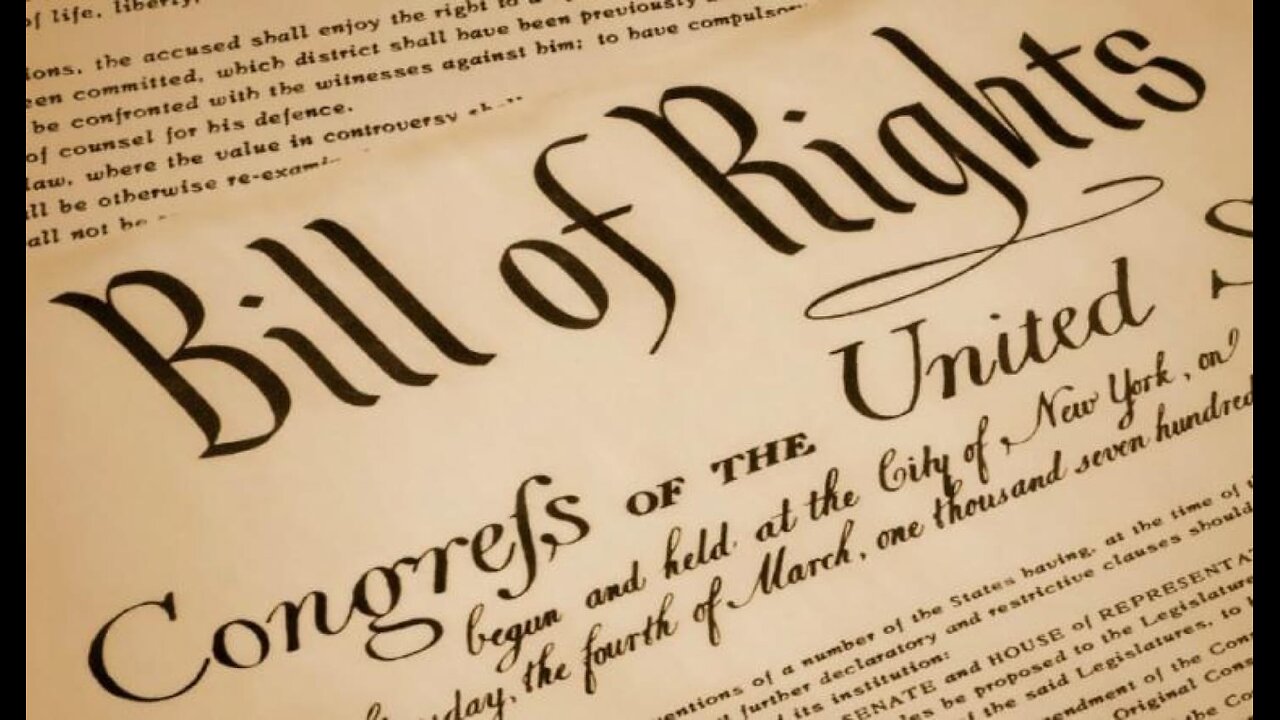 of life, liberty,
ions, the accused shall enjoy the right to a
een committed, which district shall have been previously
be confronted with the witnesses against him; to have compulsor
of counsel for his defence.
law, where the value in controversy shall
ll be otherwise re-exami
all not be
Bill of Rights
Congreſs OF THE United S
begun and held at the City of New York, on
sday, the fourth of March, one thousand seven hundred
entions of a number of the States having, at the time of t
further declaratory and restrictive clauses should
its institution:
SENATE and HOUSE of REPRESENTA
es be proposed to the Legislature
the said Legislatures, to
endment of the Con
Original Cons
the Co